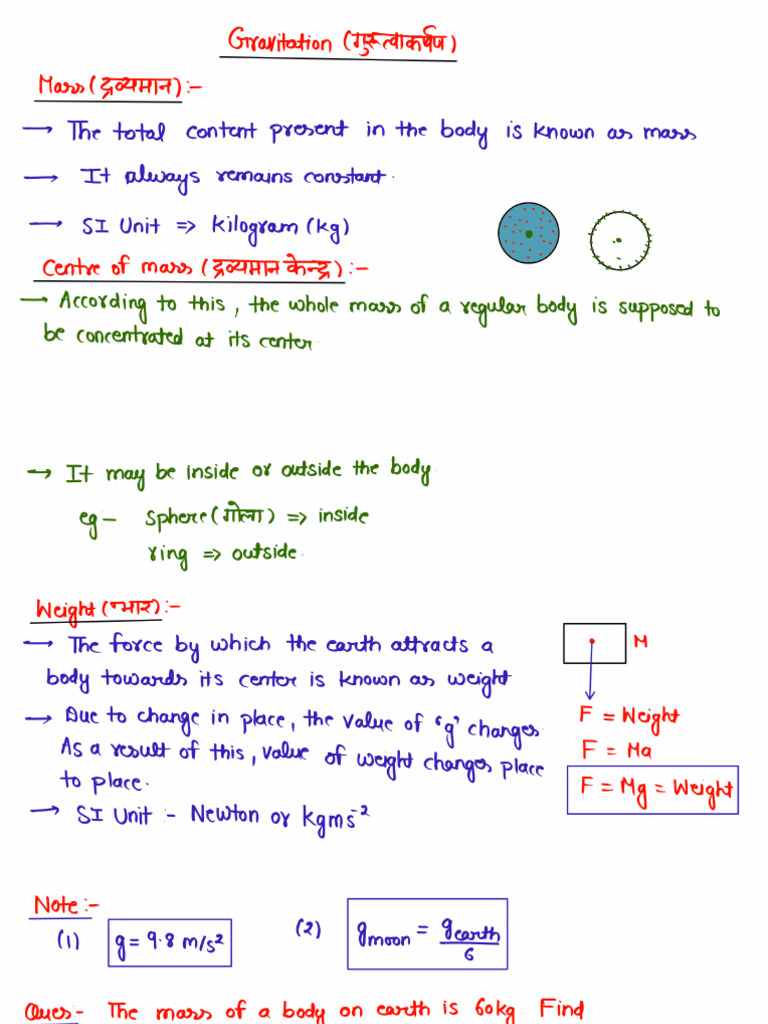 Gravitation (गुरुत्वाकर्षण)
Mass (द्रव्यमान) :-
→ The total content present in the body is known as mass
→ It always remains constant.
→ SI Unit ⇒ kilogram (kg)
Centre of mass (द्रव्यमान केन्द्र) :-
→ According to this, the whole mass of a regular body is supposed to
be concentrated at its center.
→ It may be inside or outside the body.
eg - sphere (गोला) ⇒ inside
ring ⇒ outside.
Weight (भार) :-
→ The force by which the earth attracts a
body towards its center is known as weight
M
→ Due to change in place, the value of 'g' changes
As a result of this, value of weight changes place
to place.
F = Weight
F = Ma
F = Mg = Weight
→ SI Unit :- Newton or kgms⁻²
Note :-
(1) g = 9.8 m/s²
(2) gmoon = gearth/6
Ques - The mass of a body on earth is 60kg. Find